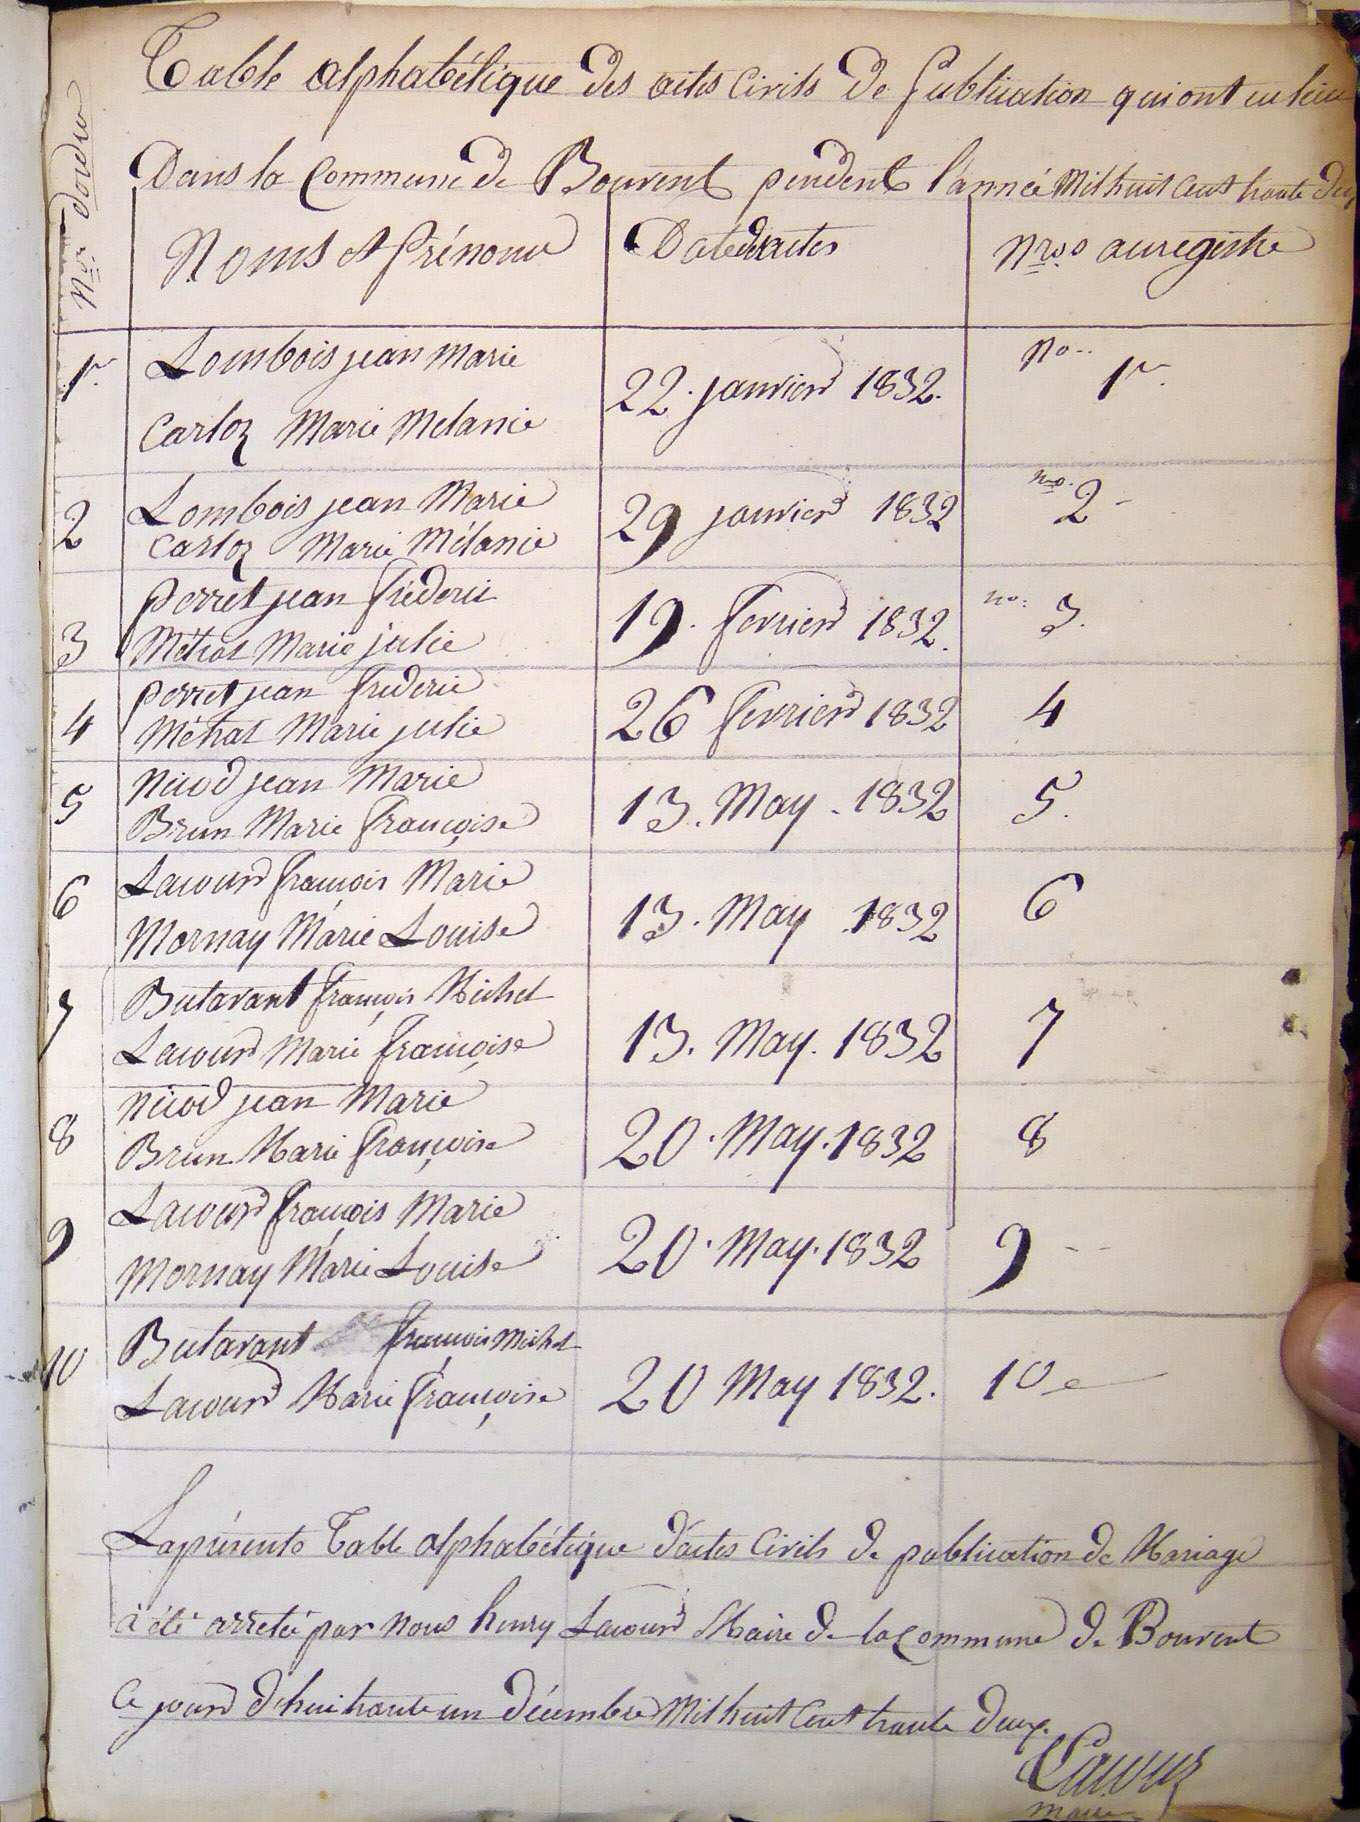 Table alphabétique des actes civils de publication qui ont eu lieu
Dans la Commune de Bouvent pendent l'année Mil huit Cent trente deux
Nos. d'ordre
Noms et Prénoms
Date des actes
Nros au registre
1r.
Lombois jean Marie
Carloz Marie Melanie
22. janvier 1832.
No.. 1r.
2
Lombois jean Marie
Carloz Marie Mélanie
29 janvier 1832
no. 2
3
perret jean frederic
Métrat Marie julie
19. fevrier 1832.
no: 3.
4
perret jean frederic
Métrat Marie julie
26 fevrier 1832
4
5
Nicod jean Marie
Brun Marie françoise
13. May. 1832
5.
6
Lacour françois Marie
Mornay Marie Louise
13. May 1832
6
7
Butavant françois Michel
Lacour Marie françoise
13. May. 1832
7
8
Nicod jean Marie
Brun Marie françoise
20. May. 1832
8
9
Lacour françois Marie
Mornay Marie Louise
20. May. 1832
9
10
Butavant françois Michel
Lacour Marie françoise
20 May 1832.
10
La présente Table alphabétique d'actes Civils de publication de Mariage
à été arretée par nous henry Lacour Maire de la commune de Bouvent
Ce jourd'hui trante un décembre Mil huit Cent trante deux.
Lacour
maire